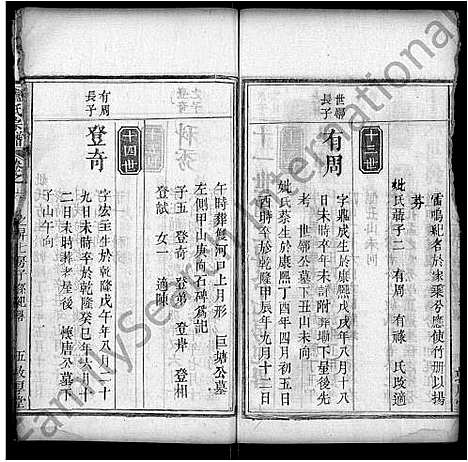 雷鳴紀名於家乘兮應使竹冊以揚
芬
妣氏蘇子二 有周 有祿 氏改適
十三世
世鄉長子
有周
字鼎成生於康熙戊戌年八月十八
日未時卒年未詳附埤塘下星後先
考 世鄉公墓下丑山未向
妣氏蔡生於康熙丁酉年四月初五日
酉時卒於乾隆甲辰年九月十二日
午時葬鯉河戸上月形 巨塘公墓
左側甲山庚向石碑為記
子五 登奇 登弟 登岸 登相
登猷 女一 適陳
十四世
有周長子
登奇
字宏至生於乾隆戊午年八月二十
九日未時卒於乾隆癸巳年六月十
二日未時葬老屋後 懷唐公墓下
子山午向
FamilySearch International